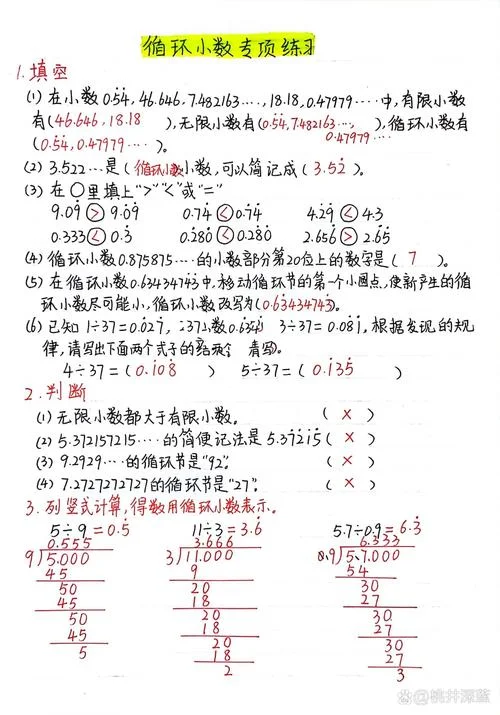 循环小数专项练习
1. 填空
(1) 在小数0.5̇4̇, 46.646, 7.482163····, 18.18, 0.47979····中, 有限小数
有(46.646, 18.18 ), 无限小数有(0.5̇4̇, 7.482163··· 0.47979····), 循环小数有
(0.5̇4̇, 0.47979···· )。
(2) 3.522···是( 循环小数 )小数, 可以简记成( 3.52̇ )。
(3) 在○里填上">""<"或"="
9.09̇ > 9.0̇9̇ 0.74̇ < 0.7̇4̇ 4.2̇9̇ < 4.3
0.333 < 0.3̇ 0.2̇80̇ < 0.28̇0̇ 2.656̇ > 2.6̇5̇
(4) 循环小数0.875875····的小数部分第20位上的数字是( 7 )
(5) 在循环小数0.63434743̇中, 移动循环节的第一个小圆点, 使新产生的循
环小数尽可能小, 循环小数改写为( )。
(6) 已知 1÷37=0.0̇27̇, 3÷37=0.0̇81̇, 根据发现的规
律, 请写出下面两个式子的
4÷37=( 0.1̇08̇ ) 5÷37=( 0.1̇35̇ )
2. 判断
(1) 无限小数都大于有限小数。 ( × )
(2) 5.372157215····的简便记法是5.37̇215̇ ( × )
(3) 9.2929···的循环节是"92". ( × )
(4) 7.2727272727的循环节是"27". ( × )
3. 列竖式计算, 得数用循环小数表示。
5÷9=0.5̇ 11÷3=3.6̇ 5.7÷0.9=6.3̇
0.555 3.666 6.333
9 5.000 3 11.000 0.9 5.7.000
45 9 54
50 20 30
45 18 27
50 20 30
45 18 27
5 20 30
18 27
2 3
@桃井深蓝